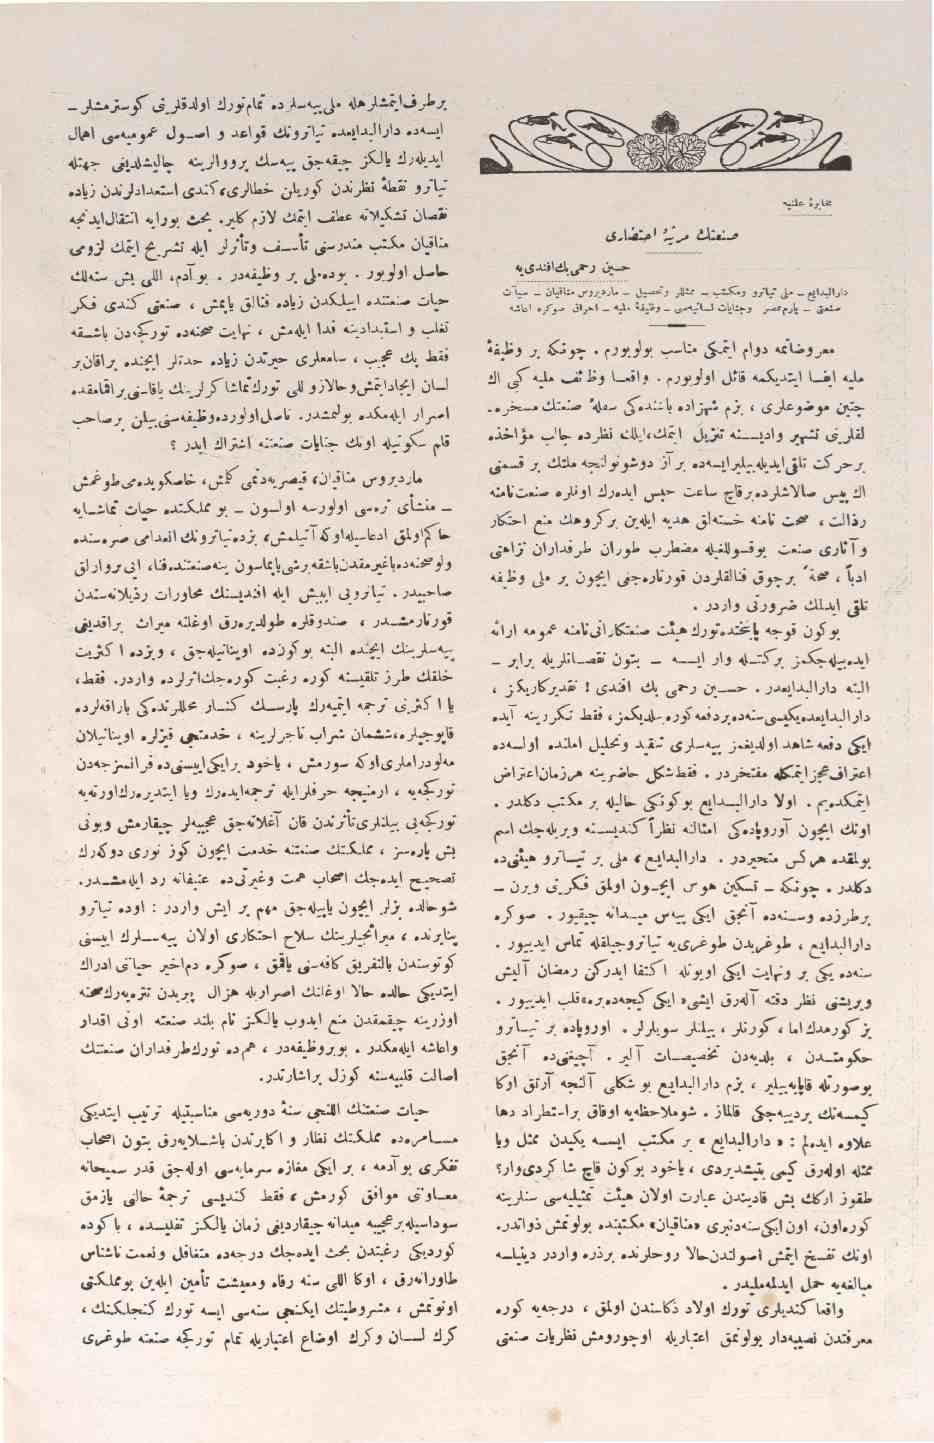 مخابرۀ علنیه
صنعتك مرثیۀ احتضاری
حسین رحمی بك افندی‌یه
دارالبدایع ــ ملی تیاترو ومکتب ــ ممثللر وتحصیل ــ ماردیروس مناقیان ــ سیآت
صنعتی ــ یارم عصر وجنایات لسانیه‌سی ــ وظیفۀ ملیه ــ احراق صوكره اعاشه
معروضاتمه دوام ایتمکی مناسب بولویورم . چونکه بر وظیفۀ
ملیه ایفا ایتدیکمه قائل اولویورم . واقعا وظائف ملیه کبی اك
چتین موضوعلری ، بزم شهزاده باشنده‌کی سفلۀ صنعتك مسخره ـ
لقلرینی تشهیر وادیسنه تنزیل ایتمك ، ایلك نظرده جالب مؤاخذه
برحرکت تلقی ایدیله‌بیلیر ایسه‌ده بر آز دوشونولنجه ملتك بر قسمنی
اك پیس صالاشلرده برقاچ ساعت حبس ایده‌رك اونلره صنعت نامنه
رذالت ، صحت نامنه خسته‌لق هدیه ایله‌ین برکروهك منع احتکار
و آثاری صنعت یوقسوللغیله مضطرب طوران طرفداران نزاهتی
ادباً ، صحةً برچوق فنالقلردن قورتاره‌جغی ایچون بر ملی وظیفه
تلقی ایدلمك ضرورتی واردر .
بوکون قوجه پایتختده تورك هیئت صنعتکارانی نامنه عمومه ارائه
ایده‌بیله‌جکمز برکتله وار ایسه ــ بتون نقصانلریله برابر ــ
البته دارالبدایعدر . حسین رحمی بك افندی ! تقدیرکاریکز ،
دارالبدایعده‌یکیسی سنه‌ده بردفعه کوره‌بیلدیکمز ، فقط تکررینه آیده
ایکی دفعه شاهد اولدیغمز پیه‌سلری تنقید وتحلیل املنده اولسه‌ده
اعتراف عجز ایتمکله مفتخردر . فقط شکل حاضرینه هرزمان اعتراض
ایتمکده‌یم . اولا دارالبدایع بوکونکی حالیله بر مکتب دکلدر .
اونك ایچون آوروپاده‌کی امثالنه نظراً کندیسنه ویریله‌جك اسم
بولمقده هرکس متحیردر . دارالبدایع ، ملی بر تیاترو هیئتی‌ده
دکلدر . چونکه ــ تسکین هوس ایچون اولمق فکرینی ویرن ــ
برطرزده وسنه‌ده آنجق ایکی پیه‌س میدانه چیقیور . صوکره
دارالبدایع ، طوغریدن طوغری‌یه تیاتروجیلقله تماس ایدییور .
سنه‌ده یکی بر ونهایت ایکی اویونله اکتفا ایدرکن رمضان آلیش
ویریشنی نظر دقته آله‌رق ایشی « ایکی کیجه‌ده بر » ه قلب ایدییور .
بز کورمه‌دك اما ، کورنلر ، بیلنلر سویلرلر . اوروپاده بر تیاترو
حکومتدن ، بلدیه‌دن تخصیصات آلیر . آچیغنی‌ده آنجق
بوصورتله قاپایه‌بیلیر ، بزم دارالبدایع بو شکلی آلنجه آرتق اوکا
کیمسه‌نك بردییه‌جکی قالماز . شوملاحظه‌یه اوفاق براستطراد دها
علاوه ایده‌لم : « دارالبدایع » بر مکتب ایسه یکیدن ممثل ویا
ممثله اوله‌رق کیمی یتیشدیردی ، یاخود بوکون قاچ شاکردی وار ؟
طقوز ارکك بش قادیندن عبارت اولان هیئت تمثیلیه‌سی سنلرینه
کوره اون ، اون ایکی سنه‌دنبری «مناقیان» مکتبنده بولونمش ذواتدر .
اونك تفسخ ایتمش اصولندن حالا روحلرنده برذره واردر دینیلسه
مبالغه‌یه حمل ایدلمه‌ملیدر .
واقعا کندیلری تورك اولاد ذکاسندن اولمق ، درجه‌یه کوره
معرفتدن نصیبه‌دار بولونمق اعتباریله اوجورومش نظریات صنعتی
برطرف ایتمشلر هله ملی پیه‌سلرده تمام تورك اولدقلرینی کوسترمشلر ــ
ایسه‌ده دارالبدایعده تیاترونك قواعد و اصول عمومیه‌سی اهمال
ایدیله‌رك یالکز چیقه‌جق پیه‌سك پرووالرینه چالیشلدیغی جهتله
تیاترو نقطۀ نظرندن کوریلن خطالری ، کندی استعدادلرندن زیاده
نقصان تشکیلاته عطف ایتمك لازم کلیر . بحث بورایه انتقال ایدنجه
مناقیان مکتب مندرسنی تأسف وتأثرلر ایله تشریح ایتمك لزومی
حاصل اولویور . بوده ملی بر وظیفه‌در . بو آدم ، اللی بش سنه‌لك
حیات صنعتنده اییلکدن زیاده فنالق یاپمش ، صنعتی کندی فکر
تغلب و استبدادینه فدا ایله‌مش ، نهایت صحنه‌ده تورکجه‌دن باشقه
فقط پك عجیب ، سامعلری حیرتدن زیاده حدتلر ایچنده براقان بر
لسان ایجاد ایتمش وحالا زوللی تورك تماشاکرلرینك یاقاسنی براقمامقده
اصرار ایله‌مکده بولنمشدر . ناصل اولورده وظیفه‌سنی بیلن برصاحب
قلم سکوتیله اونك جنایات صنعتنه اشتراك ایدر ؟
ماردیروس مناقیان ، قیصریه‌دنمی کلمش ، خاصکویده‌می طوغمش
ــ منشأی نره‌سی اولورسه اولسون ــ بو مملکتده حیات تماشایه
حاکم اولمق ادعاسیله اوکه آتیلمش ، بزده تیاترونك انعدامی صره‌سنده
ولو صحنه‌ده باغیرمقدن باشقه برشی یاپماسون ینه صنعتنده فنا ، ایی بر وارلق
صاحبیدر . تیاترویی ابیش ایله افندیسنك محاورات رذیلانه‌سندن
قورتارمشدر ، صندوقلره طولدیره‌رق اوغلنه میراث براقدیغی
پیه‌سلرینك ایچنده البته بوکون‌ده اوینانیله‌جق ، وبزده اکثریت
خلقك طرز تلقیسنه کوره رغبت کوره‌جك اثرلرده واردر . فقط ،
یا اکثرینی ترجمه ایتمیه‌رك پارسك کنار محللرنده‌کی بارافه‌لرده
قاپوجیلره ، شیشمان شراب تاجرلرینه ، خدمتجی قیزلره اوینانیلان
مه‌لودراملری اوکه سورمش ، یاخود برایکی اییسنی‌ده فرانسزجه‌دن
تورکجه‌یه ، ارمنیجه حرفلرایله ترجمه ایده‌رك ویا ایتدیره‌رك اورته‌یه
تورکجه‌یی بیلنلری تأثرندن قان آغلاته‌جق عجیبه‌لر چیقارمش وبونی
بش پاره‌سز ، مملکتك صنعتنه خدمت ایچون کوز نوری دوکه‌رك
تصحیح ایده‌جك اصحاب همت وغیرتی‌ده عنیفانه رد ایله‌مشدر .
شوحالده بزلر ایچون یاپیله‌جق مهم بر ایش واردر : اوده تیاترو
پنایرنده ، میرانجیلرینك سلاح احتکاری اولان پیه‌سلرك اییسنی
کوتوسندن بالتفریق کافه‌سنی یاقمق ، صوکره دم اخیر حیاتنی ادراك
ایتدیکی حالده حالا اوغانك اصراریله هزال پریدن تتره‌یه‌رك صحنه
اوزرینه چیقمقدن منع ایدوب یالکز نام بلند صنعته اونی اقدار
واعاشه ایله‌مکدر . بو بر وظیفه‌در ، هم‌ده تورك طرفداران صنعتنك
اصالت قلبیه‌سنه کوزل براشارتدر .
حیات صنعتنك اللنجی سنۀ دوریه‌سی مناسبتیله ترتیب ایتدیکی
مسامره‌ده مملکتك نظار و اکابرندن باشلایه‌رق بتون اصحاب
تفکری بو آدمه ، بر ایکی مغازه سرمایه‌سی اوله‌جق قدر سمیحانه
معاونتی موافق کورمش ، فقط کندیسی ترجمۀ حالنی یازمق
سوداسیله بر عجیبه میدانه چیقاردیغی زمان یالکز تقلیسده ، باکوده
کوردیکی رغبتدن بحث ایده‌جك درجه‌ده متغافل ونعمت ناشناس
طاورانه‌رق ، اوکا اللی سنه رفاه ومعیشت تأمین ایله‌ین بومملکتی
اونوتمش ، مشروطیتك ایکنجی سنه‌سی ایسه تورك کنجلکنك ،
کرك لسان وکرك اوضاع اعتباریله تمام تورکجه صنعته طوغری